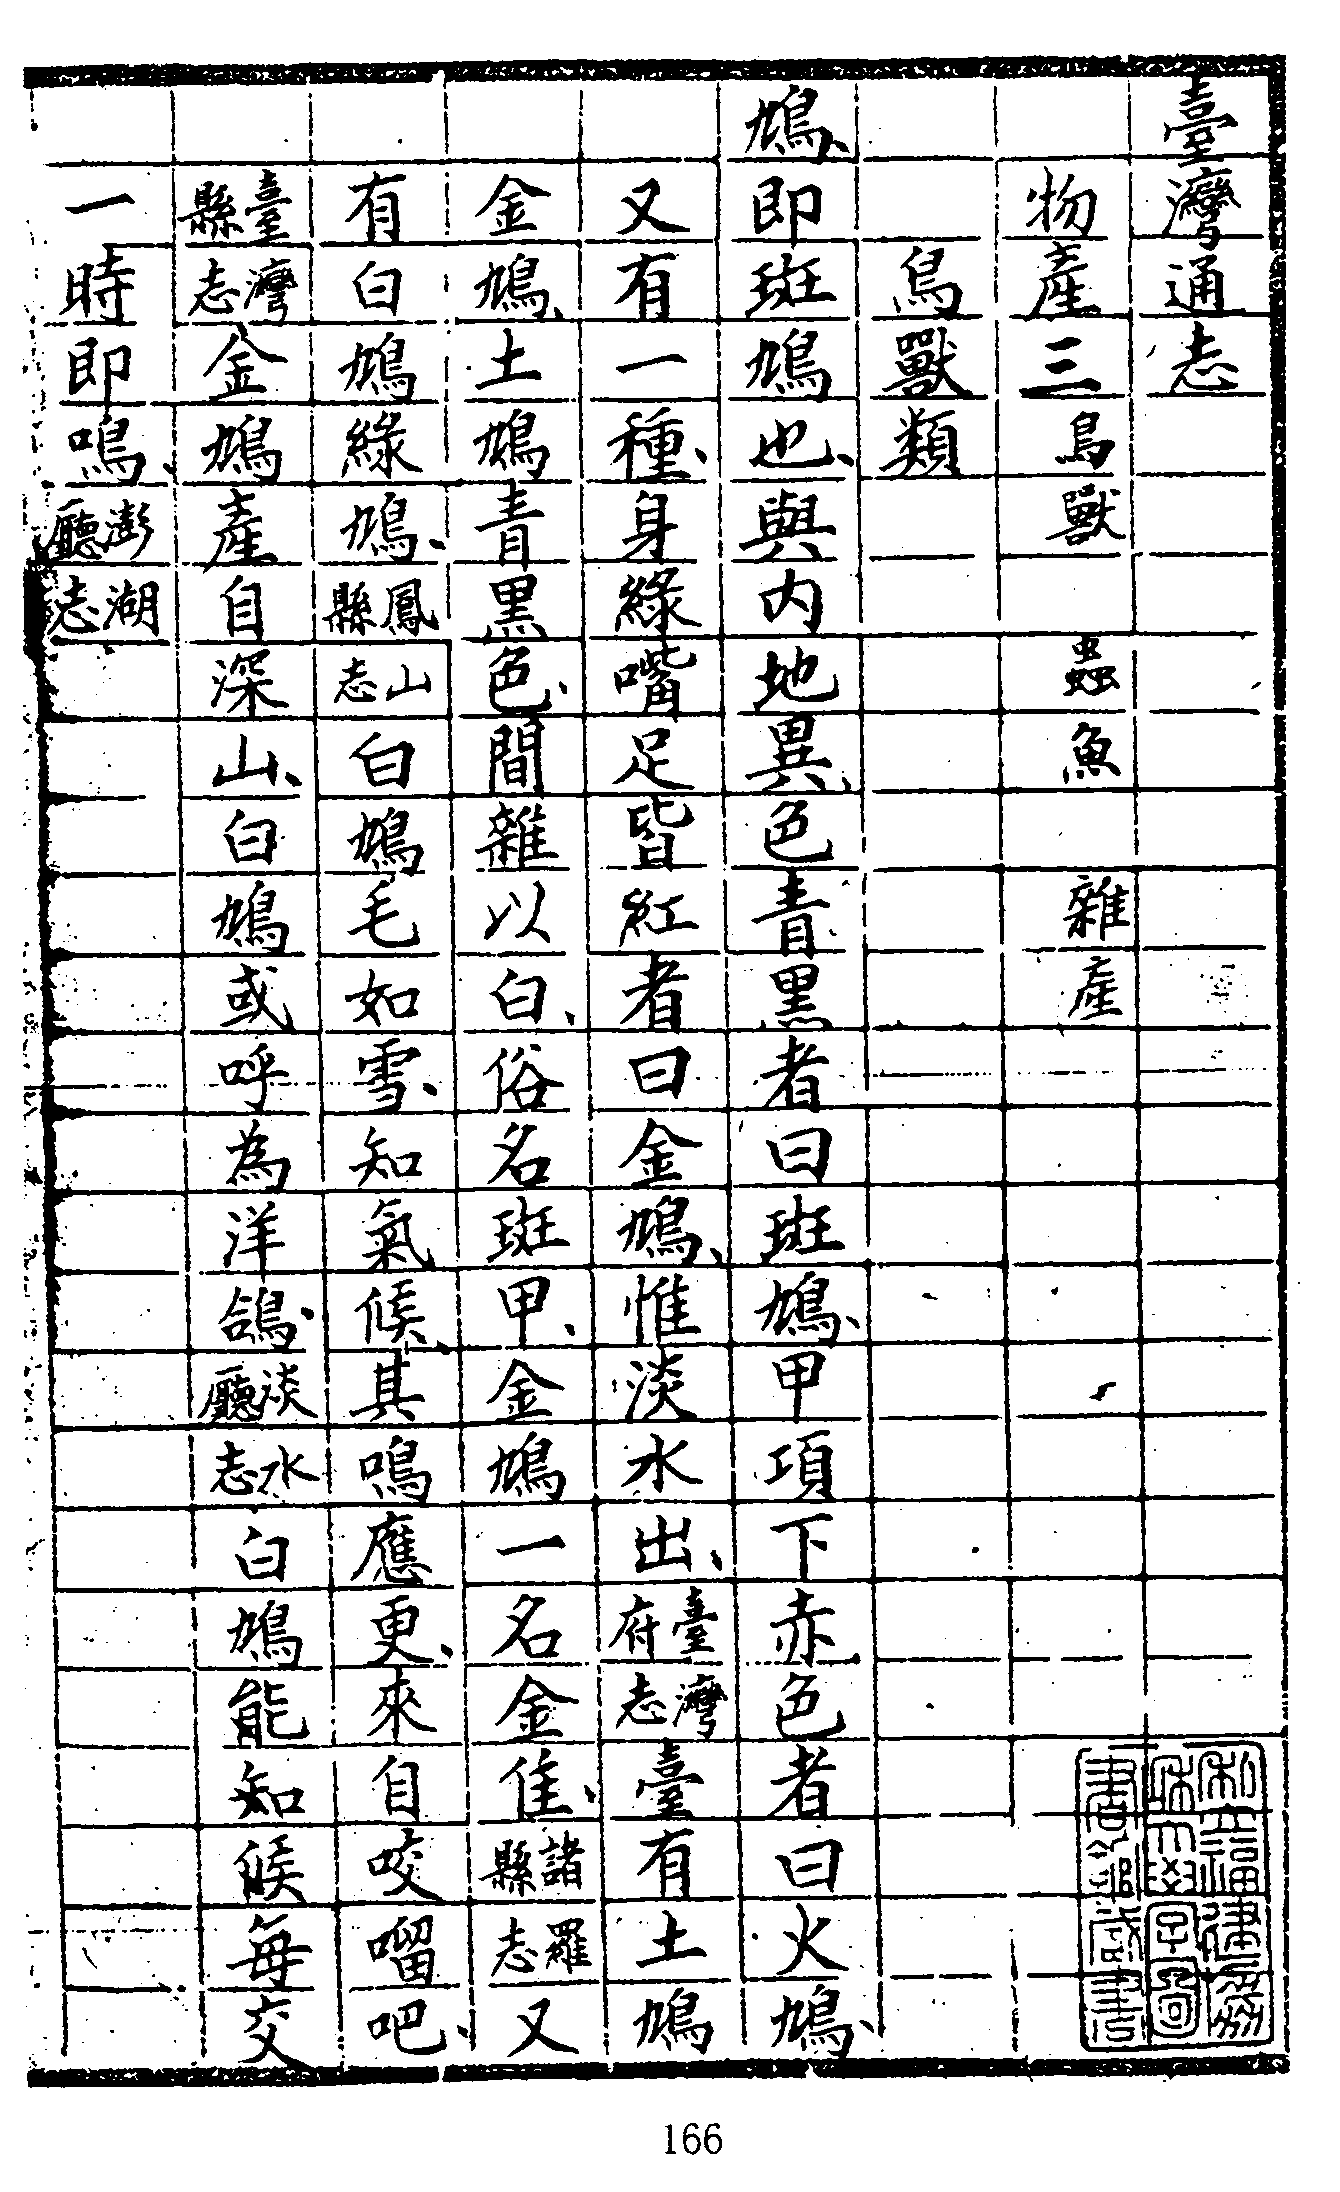 臺灣通志
物產三鳥獸 蟲魚 雜產
鳥獸類
鳩、即斑鳩也、與內地異、色青黑者曰斑鳩、甲項下赤色者曰火鳩、
又有一種、身綠嘴足皆紅者曰金鳩、惟淡水出、臺灣府志臺有土鳩
金鳩、土鳩青黑色、間雜以白、俗名斑甲、金鳩一名金隹、諸羅縣志又
有白鳩綠鳩、鳳山縣志白鳩毛如雪、知氣候、其鳴應更、來自咬𠺕吧、
臺灣縣志金鳩產自深山、白鳩或呼為洋鴿、淡水廳志白鳩能知候每交
一時即鳴、澎湖廳志
166